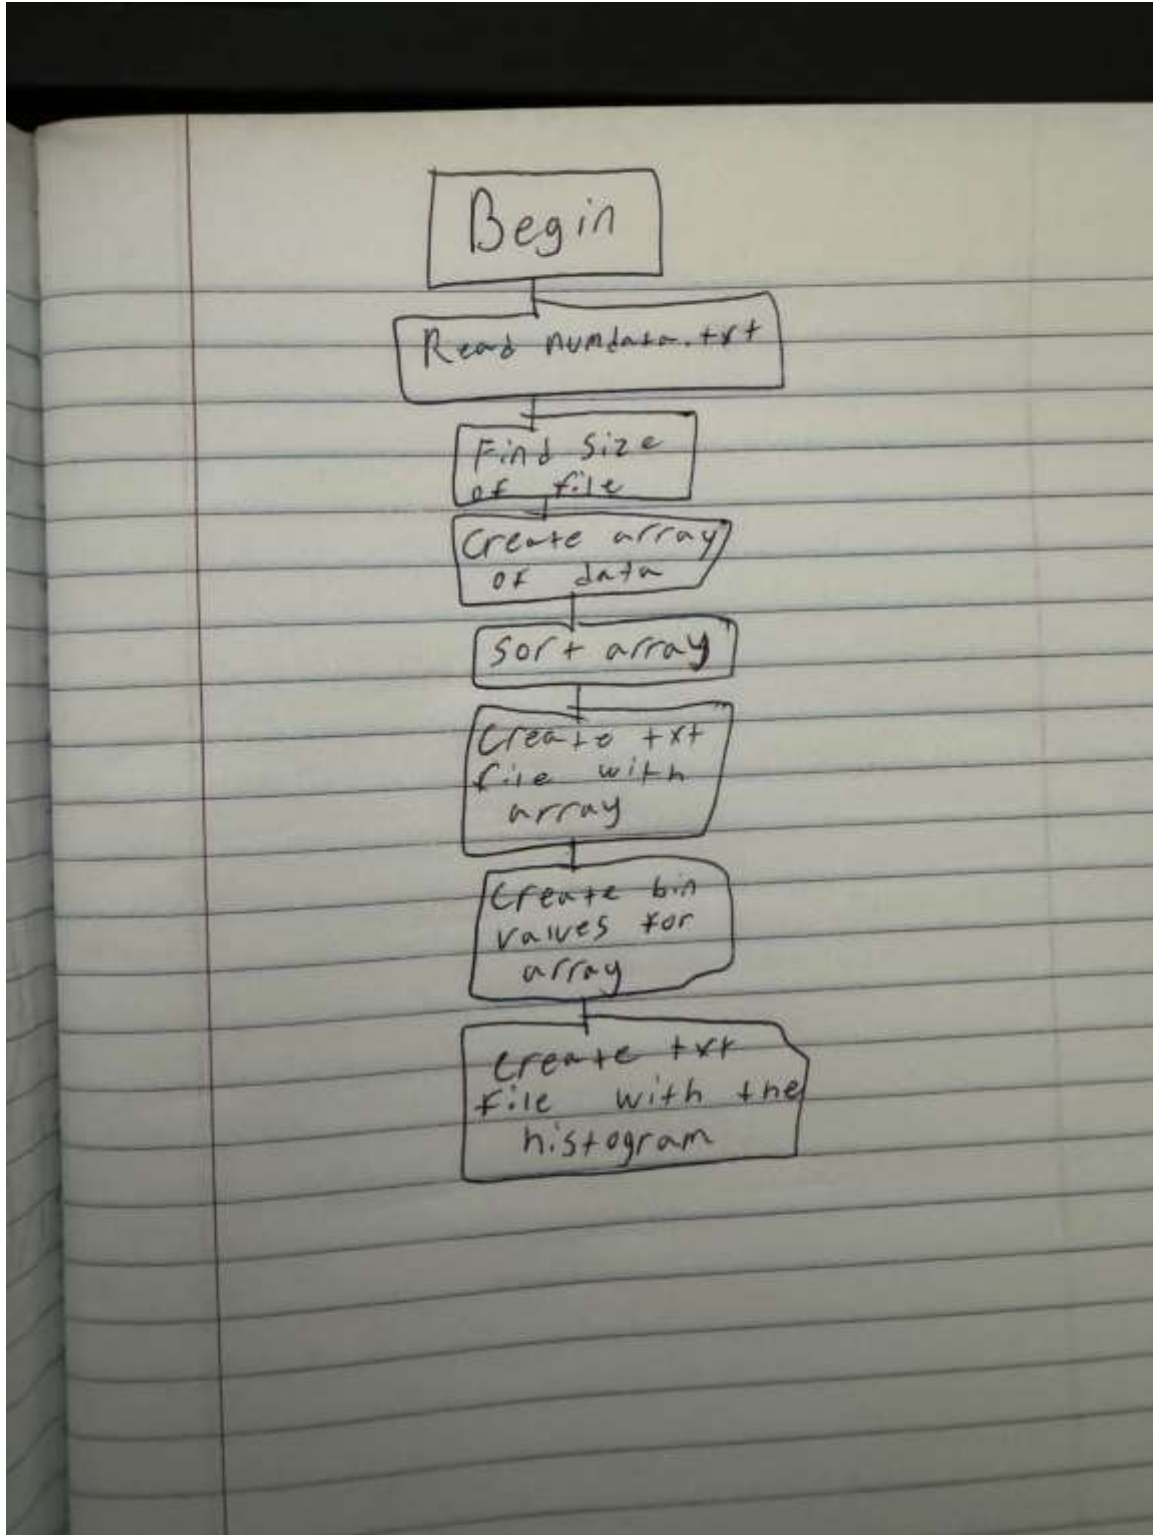 Begin
Read numdata.txt
Find size
of file
Create array
of data
Sort array
Create txt
file with
array
Create bin
values for
array
Create txt
file with the
histogram